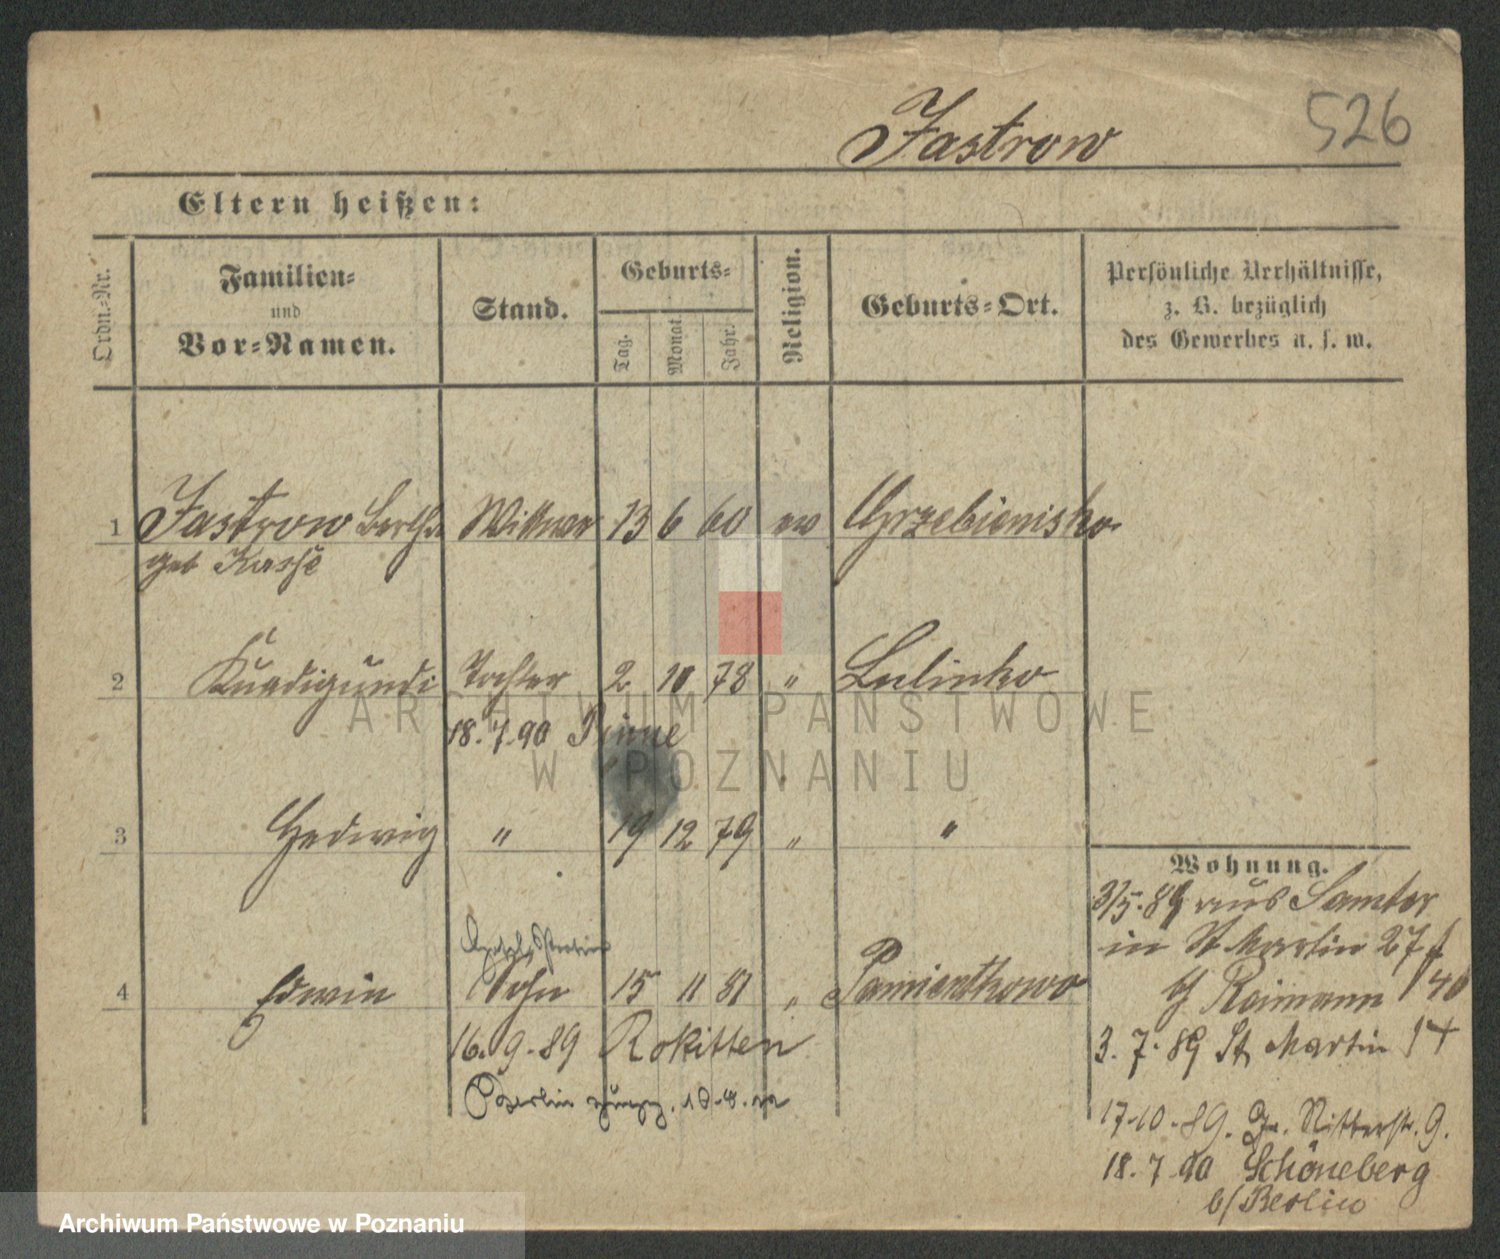 Jastrow 526
Eltern heißen:
Ordn.-Nr.
Familien-
und
Vor-Namen.
Stand.
Geburts-
Tag.
Monat.
Jahr.
Religion.
Geburts-Ort.
Persönliche Verhältnisse,
z. B. bezüglich
des Gewerbes u. s. w.
1 Jastrow Bertha Wittwe 13 6 60 ev Grzebienisko
geb
2 Tochter 2 10 78 " Lulinko
18.7.90 Pinne
3 Hedwig " 19 12 79 " "
Wohnung.
3/5.89 aus Samter
in St Martin 27
b/ Reimann
4 Edwin Sohn 15 11 81 " Pamiontkowo
16.9.89 Rokitten
3.7.89 St Martin 14
Berlin
17.10.89. Gr. Ritterstr. 9.
18.7.90 Schöneberg
b/Berlin
ARCHIWUM PAŃSTWOWE
W POZNANIU
Archiwum Państwowe w Poznaniu